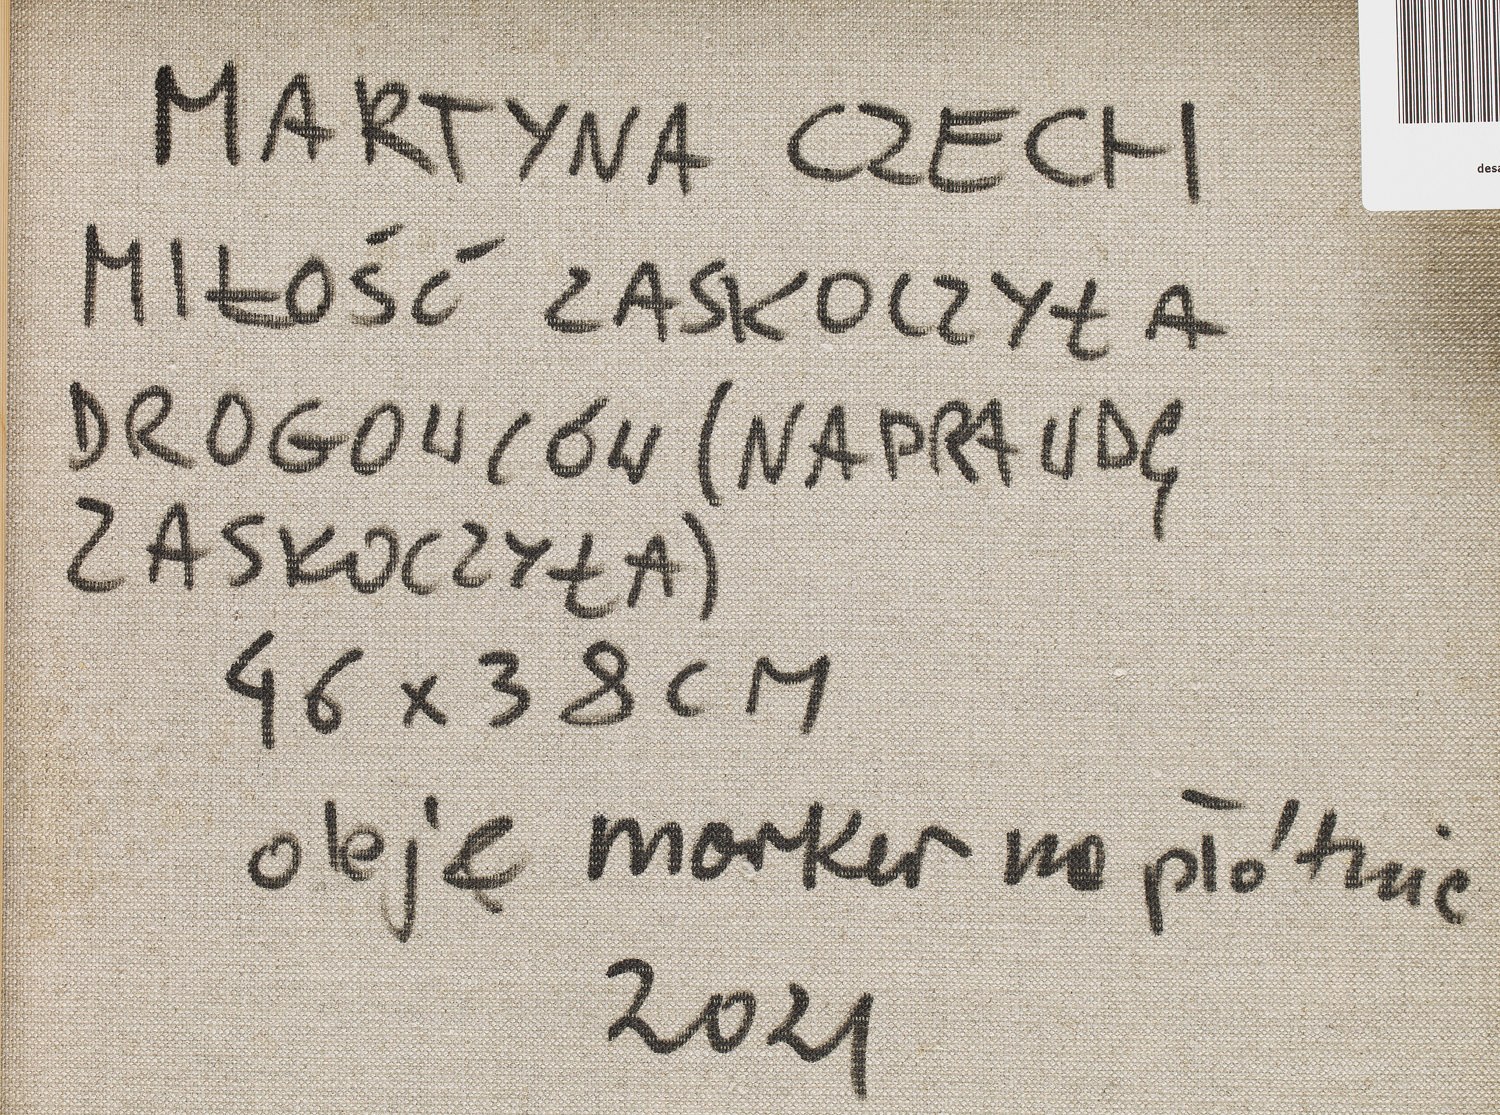 MARTYNA CZECH
MIŁOŚĆ ZASKOCZYŁA
DROGOWCÓW (NAPRAWDĘ
ZASKOCZYŁA)
46 x 38 CM
olej i marker na płótnie
2021
desa